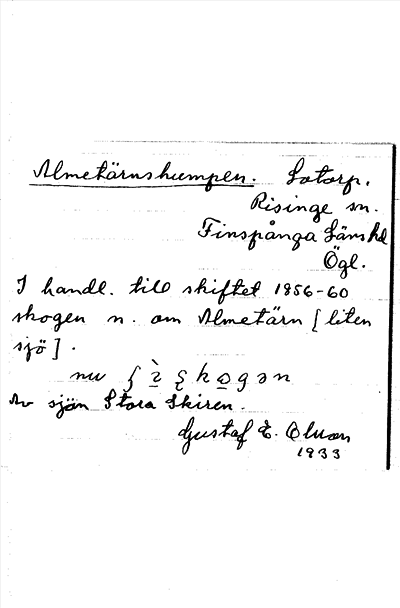 Almetärnshumpen. Lotorp.
Risinge sn.
Finspånga Läns hd
Ögl.
I handl. till skiftet 1856-60
skogen n. om Almetärn [liten
sjö].
nu
Av sjön Stora Skiren.
Gustaf E. Olsson
1933